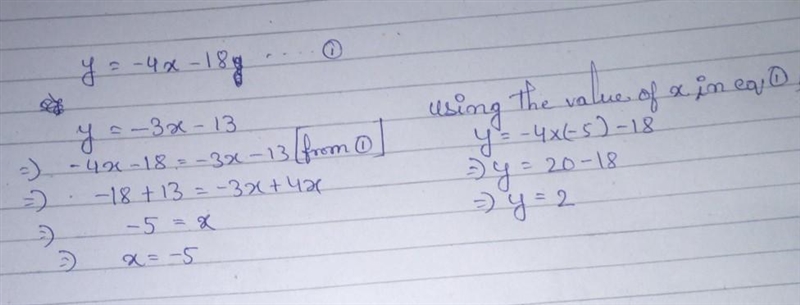 y = -4x - 18 .... ①
y = -3x - 13
⇒) -4x - 18 = -3x - 13 [from ①]
⇒) . -18 + 13 = -3x + 4x
⇒) -5 = x
⇒) x = -5
Using the value of x in eq ①,
y = -4x(-5) - 18
⇒) y = 20 - 18
⇒) y = 2